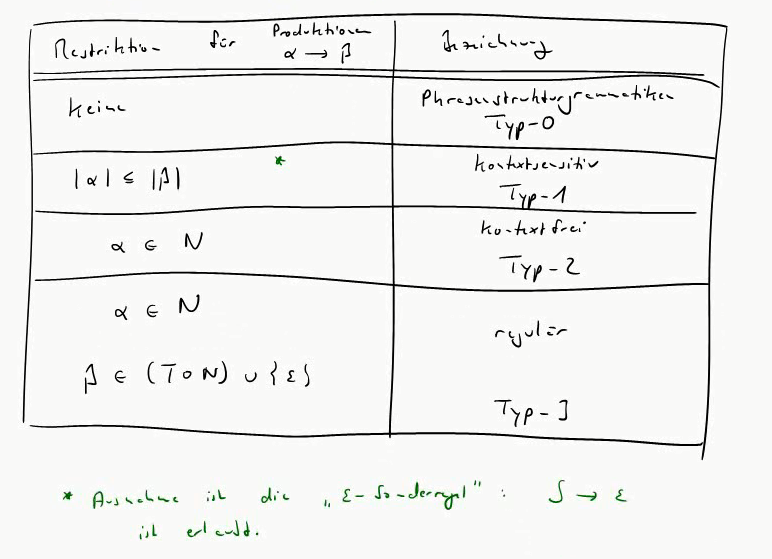 Restriktion für Produktionen α → β Bezeichnung
keine Phrasenstrukturgrammatiken
Typ-0
|α| ≤ |β| * kontextsensitiv
Typ-1
α ∈ N kontextfrei
Typ-2
α ∈ N regulär
β ∈ (T∘N) ∪ {ε}
Typ-3
* Ausnahme ist die „ε-Sonderregel": S → ε
ist erlaubt.